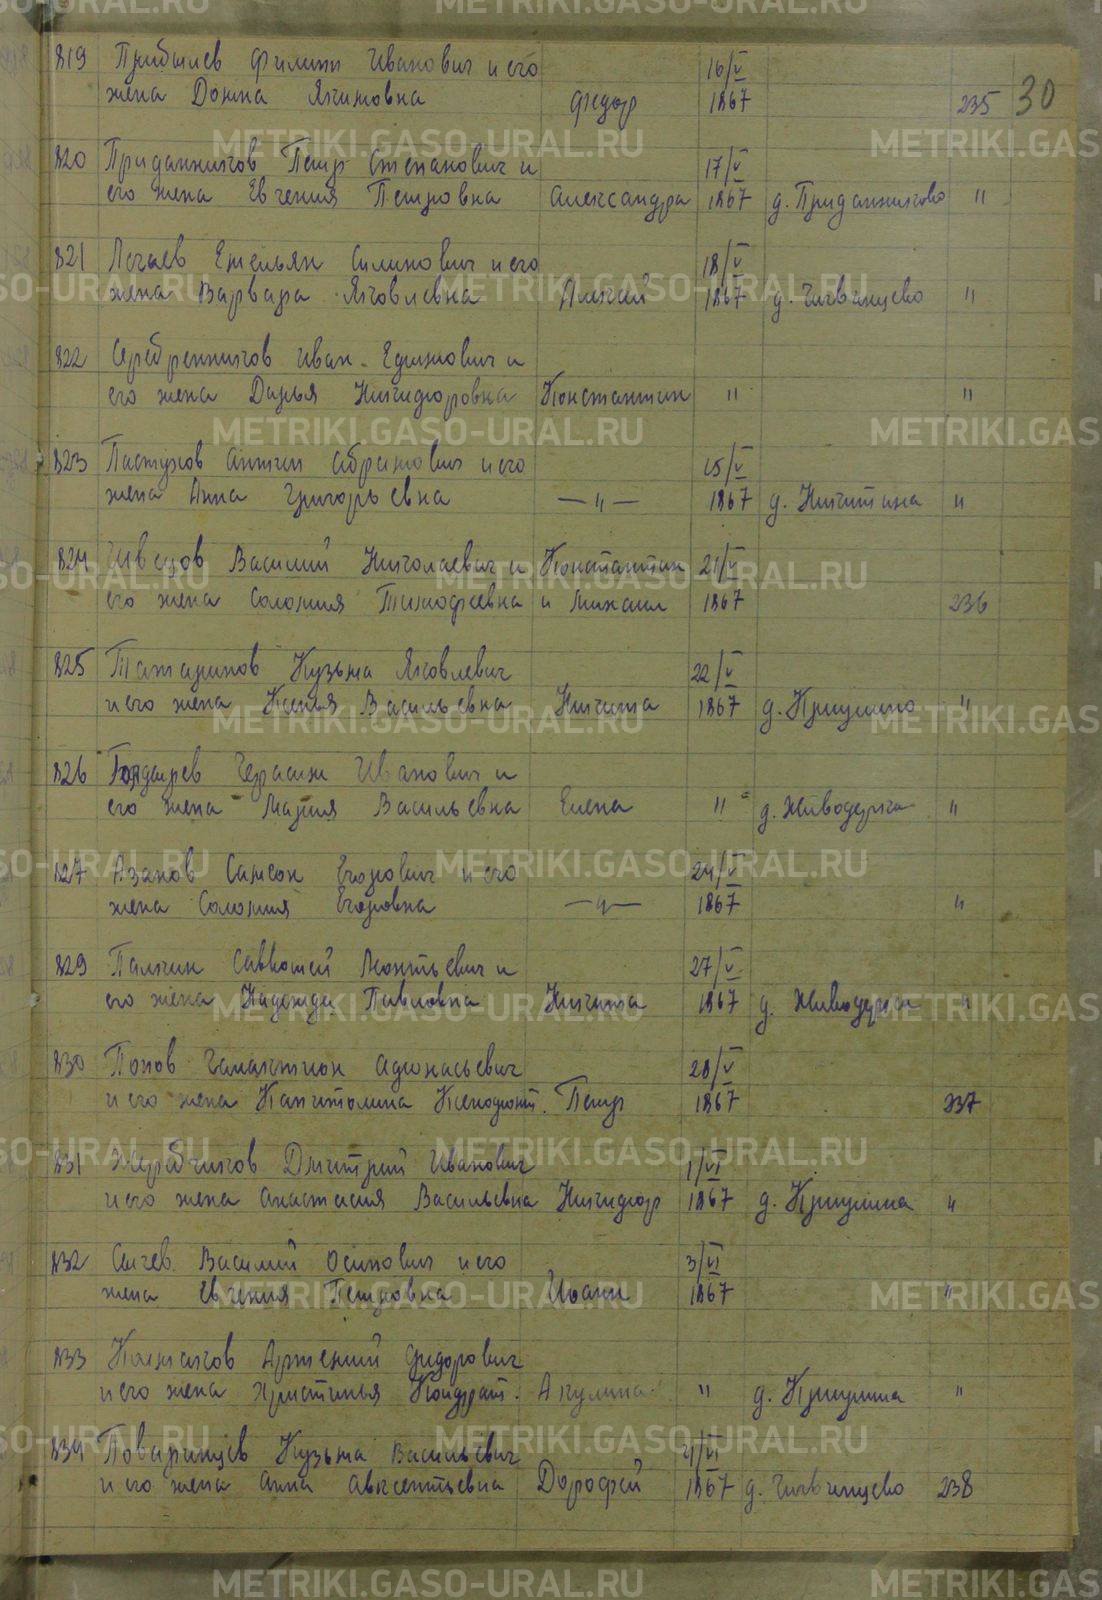 30
819 Прибылев Филипп Иванович и его 16/V
жена Домна Якимовна Федор 1867 235
820 Приданников Петр Степанович и 17/V
его жена Евгения Петровна Александра 1867 д. Приданниково "
821 Емельян Силинович и его 18/V
жена Варвара Яковлевна 1867 д. "
822 Серебренников Иван Ефимович и
его жена Дарья Никифоровна Константин " "
823 Пастухов Антип Абрамович и его 15/V
жена Анна Григорьевна — " — 1867 д. Никитина "
824 Швецов Василий Николаевич и Константин 21/V
его жена Соломия Тимофеевна и Михаил 1867 236
825 Татаринов Кузьма Яковлевич 22/V
и его жена Ксенья Васильевна Никита 1867 д. Криулино "
826 Герасим Иванович и
его жена Мария Васильевна Елена " д. Живодерка "
827 Азанов Самсон Егорович и его 24/V
жена Соломия Егоровна — " — 1867 "
829 Палкин Савватей Леонтьевич и 27/V
его жена Надежда Павловна Никита 1867 д. Живодерка "
830 Попов Галактион Афонасьевич 28/V
и его жена Капитолина Ксенофонт. Петр 1867 237
831 Жеребчиков Дмитрий Иванович 1/VI
и его жена Анастасия Васильевна Никифор 1867 д. Криулина "
832 Сычев Василий Осипович и его 3/VI
жена Евгения Петровна Иоанн 1867 "
833 Артемий Сидорович
и его жена Христинья Кондрат. Акулина " д. Криулина "
834 Поваринцев Кузьма Васильевич 4/VI
и его жена Анна Авксентьевна Дорофей 1867 д. 238
METRIKI.GASO-URAL.RU